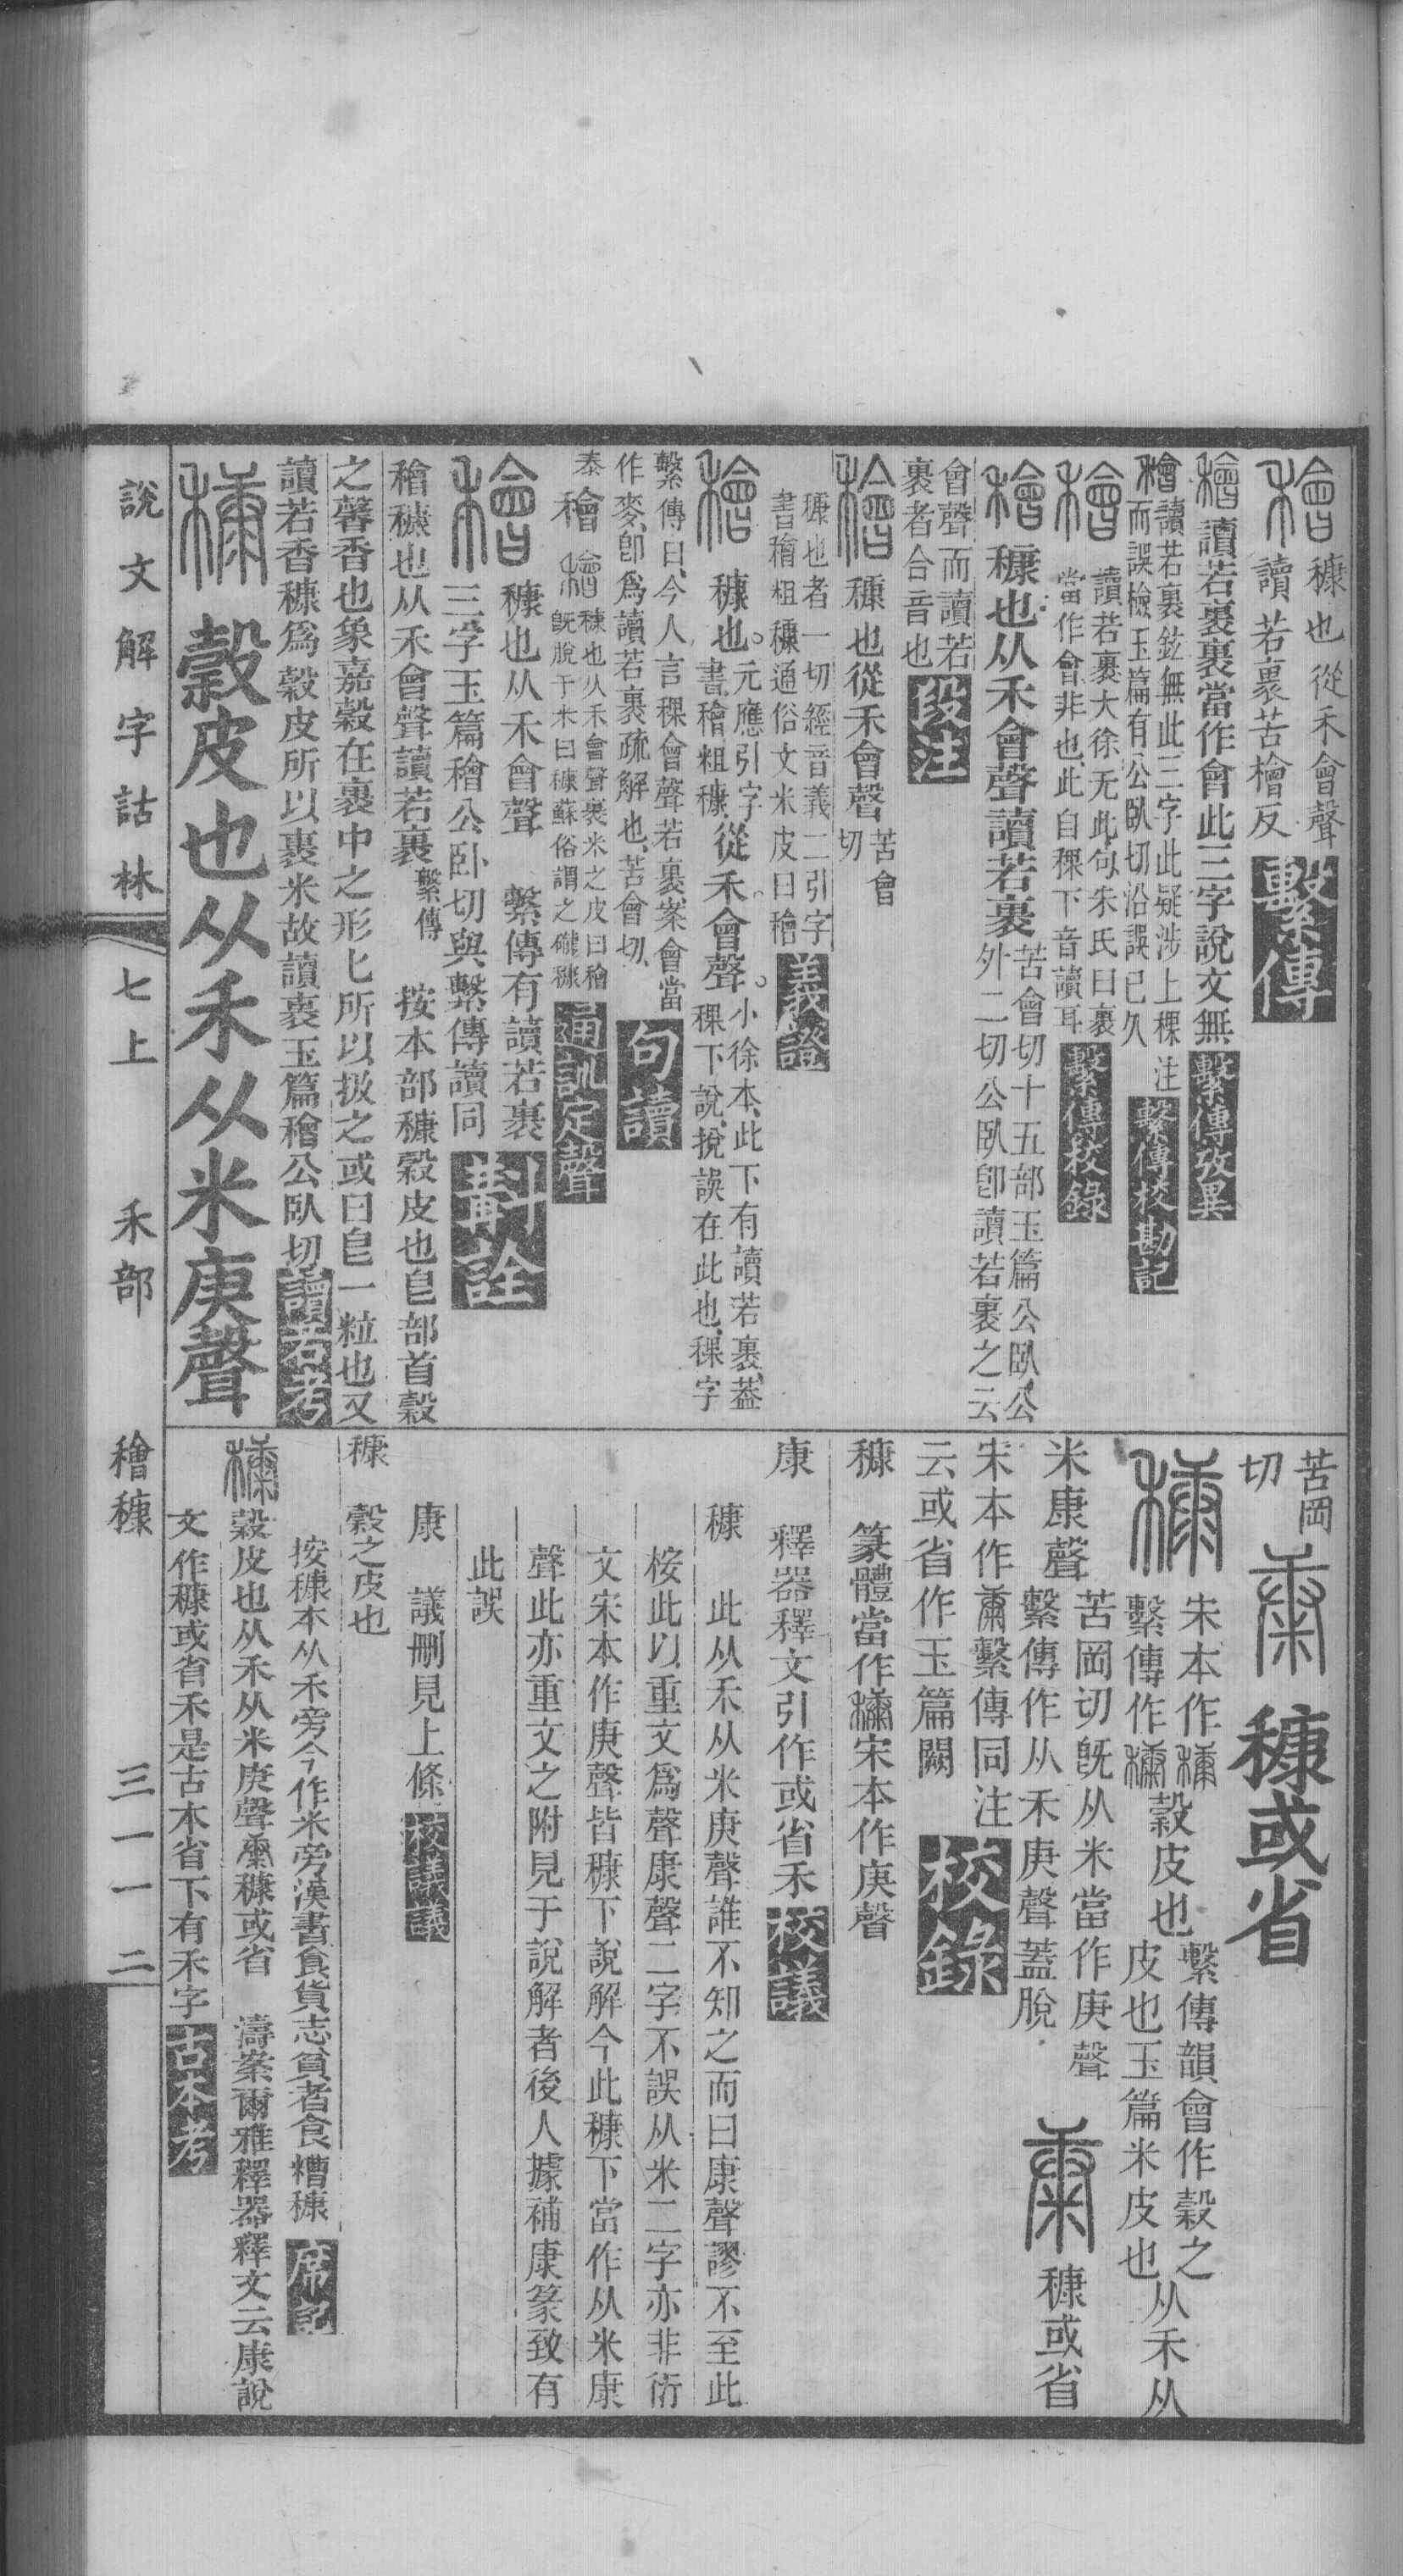 穅也從禾會聲
讀若裹苦檜反繫傳
讀若裹裹當作會此三字說文無繫傳攷異
讀若裹鉉無此三字此疑涉上稞注
而誤檢玉篇有公臥切沿誤已久繫傳校勘記
讀若裹大徐无此句朱氏曰裹
當作會非也此自稞下音讀耳繫傳校錄
穅也从禾會聲讀若裹
苦會切十五部玉篇公臥公
外二切公臥卽讀若裹之云
會聲而讀若
裹者合音也段注
穅也從禾會聲苦會切
穅也者一切經音義二引字
書穭粗穅通俗文米皮曰䅥義證
穅也元應引字書䅥粗穅從禾會聲
小徐本此下有讀若裹葢
稞下說挩誤在此也稞字
繫傳曰今人言稞會聲若裹案會當
作麥卽爲讀若裹疏解也苦會切句讀
泰䅥
穅也从禾會聲裹米之皮曰䅥
旣脫于米曰穅蘇俗謂之礱穅通訓定聲
穅也从禾會聲 繫傳有讀若裹
三字玉篇䅥公臥切與繫傳讀同斠詮
䅥穅也从禾會聲讀若裹繫傳 按本部穅穀皮也皀部首穀
之馨香也象嘉穀在裹中之形匕所以扱之或曰皀一粒也又
讀若香穅爲穀皮所以裹米故讀裹玉篇䅥公臥切讀若考
穀皮也从禾从米庚聲
說文解字詁林 七上 禾部 䅥穅 三一一二
苦岡切
穅或省
宋本作穅
繫傳作穅穀皮也
繫傳韻會作穀之
皮也玉篇米皮也从禾从
米康聲
苦岡切旣从米當作庚聲
繫傳作从禾庚聲蓋脫
穅或省
宋本作康繫傳同注
云或省作玉篇闕校錄
穅 篆體當作穅宋本作庚聲
康 釋器釋文引作或省禾校議
穅 此从禾从米庚聲誰不知之而曰康聲謬不至此
桉此以重文爲聲康聲二字不誤从米二字亦非衍
文宋本作庚聲皆穅下說解今此穅下當作从米康
聲此亦重文之附見于說解者後人據補康篆致有
此誤
康 議刪見上條校議議
穅 穀之皮也
按穅本从禾旁今作米旁漢書食貨志貧者食糟穅席記
穀皮也从禾从米庚聲康穅或省 濤案爾雅釋器釋文云康說
文作穅或省禾是古本省下有禾字古本考